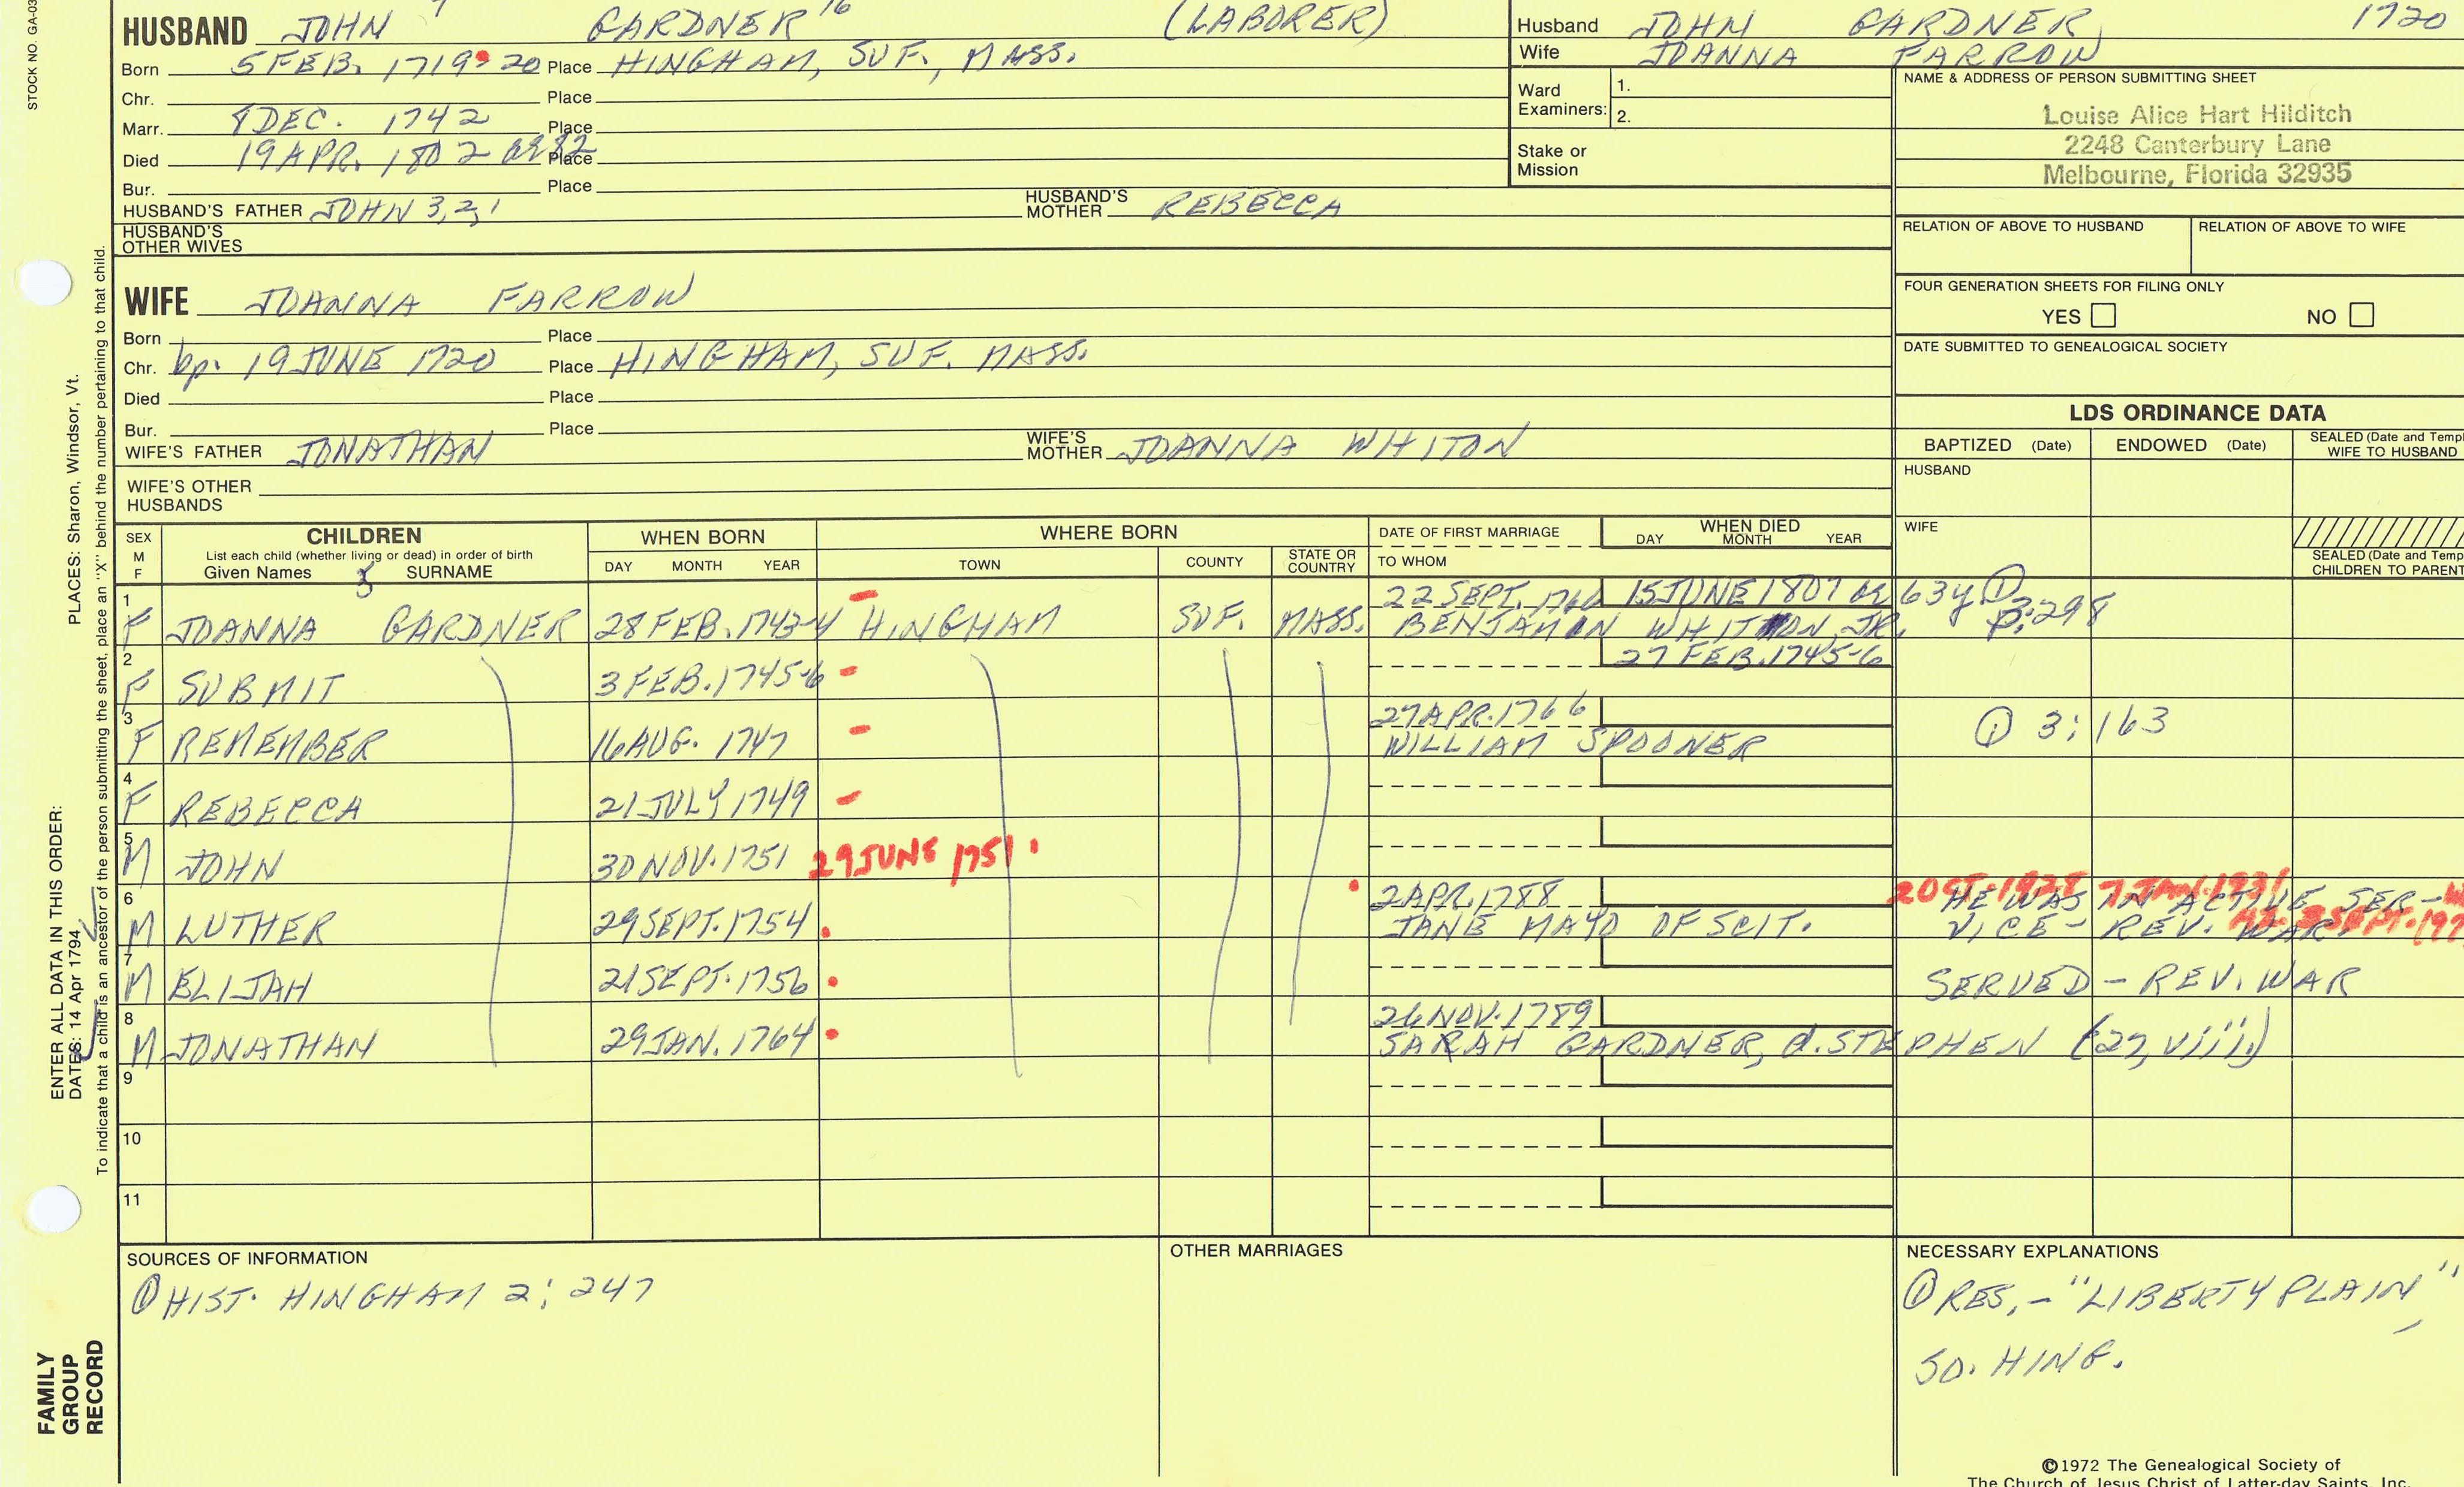 STOCK NO. GA-03
HUSBAND JOHN GARDNER 16 (LABORER)
Born 5 FEB. 1719-20 Place HINGHAM, SUF., MASS.
Chr. Place
Marr. 8 DEC. 1742 Place
Died 19 APR. 1802 ae 82 Place
Bur. Place
HUSBAND'S FATHER JOHN 3,2,1 HUSBAND'S MOTHER REBECCA
HUSBAND'S OTHER WIVES
Husband JOHN GARDNER, 1720
Wife JOANNA FARROW
Ward Examiners: 1.
2.
Stake or Mission
NAME & ADDRESS OF PERSON SUBMITTING SHEET
Louise Alice Hart Hilditch
2248 Canterbury Lane
Melbourne, Florida 32935
RELATION OF ABOVE TO HUSBAND RELATION OF ABOVE TO WIFE
FOUR GENERATION SHEETS FOR FILING ONLY
YES NO
DATE SUBMITTED TO GENEALOGICAL SOCIETY
WIFE JOANNA FARROW
Born Place
Chr. bp. 19 JUNE 1720 Place HINGHAM, SUF. MASS.
Died Place
Bur. Place
WIFE'S FATHER JONATHAN WIFE'S MOTHER JOANNA WHITON
WIFE'S OTHER HUSBANDS
LDS ORDINANCE DATA
BAPTIZED (Date) ENDOWED (Date) SEALED (Date and Templ
WIFE TO HUSBAND
HUSBAND
WIFE
SEALED (Date and Temp
CHILDREN TO PARENT
SEX M F
CHILDREN
List each child (whether living or dead) in order of birth
Given Names SURNAME
WHEN BORN
DAY MONTH YEAR
WHERE BORN
TOWN COUNTY STATE OR COUNTRY
DATE OF FIRST MARRIAGE
TO WHOM
WHEN DIED
DAY MONTH YEAR
1 F JOANNA GARDNER 28 FEB. 1743-4 HINGHAM SUF. MASS. 22 SEPT. 1766 15 JUNE 1807 ae 63 y ①
BENJAMIN WHITON, JR. 3:298
2 F SUBMIT 3 FEB. 1745-6 27 FEB. 1745-6
3 F REMEMBER 16 AUG. 1747 27 APR. 1766
WILLIAM SPOONER ① 3:163
4 F REBECCA 21 JULY 1749
5 M JOHN 30 NOV. 1751 29 JUNE 1751
6 M LUTHER 29 SEPT. 1754 2 APR. 1788
JANE MAYO OF SCIT.
HE WAS IN ACTIVE SER-
VICE - REV. WAR.
7 M ELIJAH 21 SEPT. 1756 SERVED - REV. WAR
8 M JONATHAN 29 JAN. 1764 26 NOV. 1789
SARAH GARDNER, d. STEPHEN (27, viii.)
9
10
11
SOURCES OF INFORMATION
① HIST. HINGHAM 2:247
OTHER MARRIAGES
NECESSARY EXPLANATIONS
① RES. - "LIBERTY PLAIN"
SO. HING.
©1972 The Genealogical Society of
The Church of Jesus Christ of Latter-day Saints, Inc.
ENTER ALL DATA IN THIS ORDER:
DATES: 14 Apr 1794 PLACES: Sharon, Windsor, Vt.
To indicate that a child is an ancestor of the person submitting the sheet, place an "X" behind the number pertaining to that child.
FAMILY
GROUP
RECORD